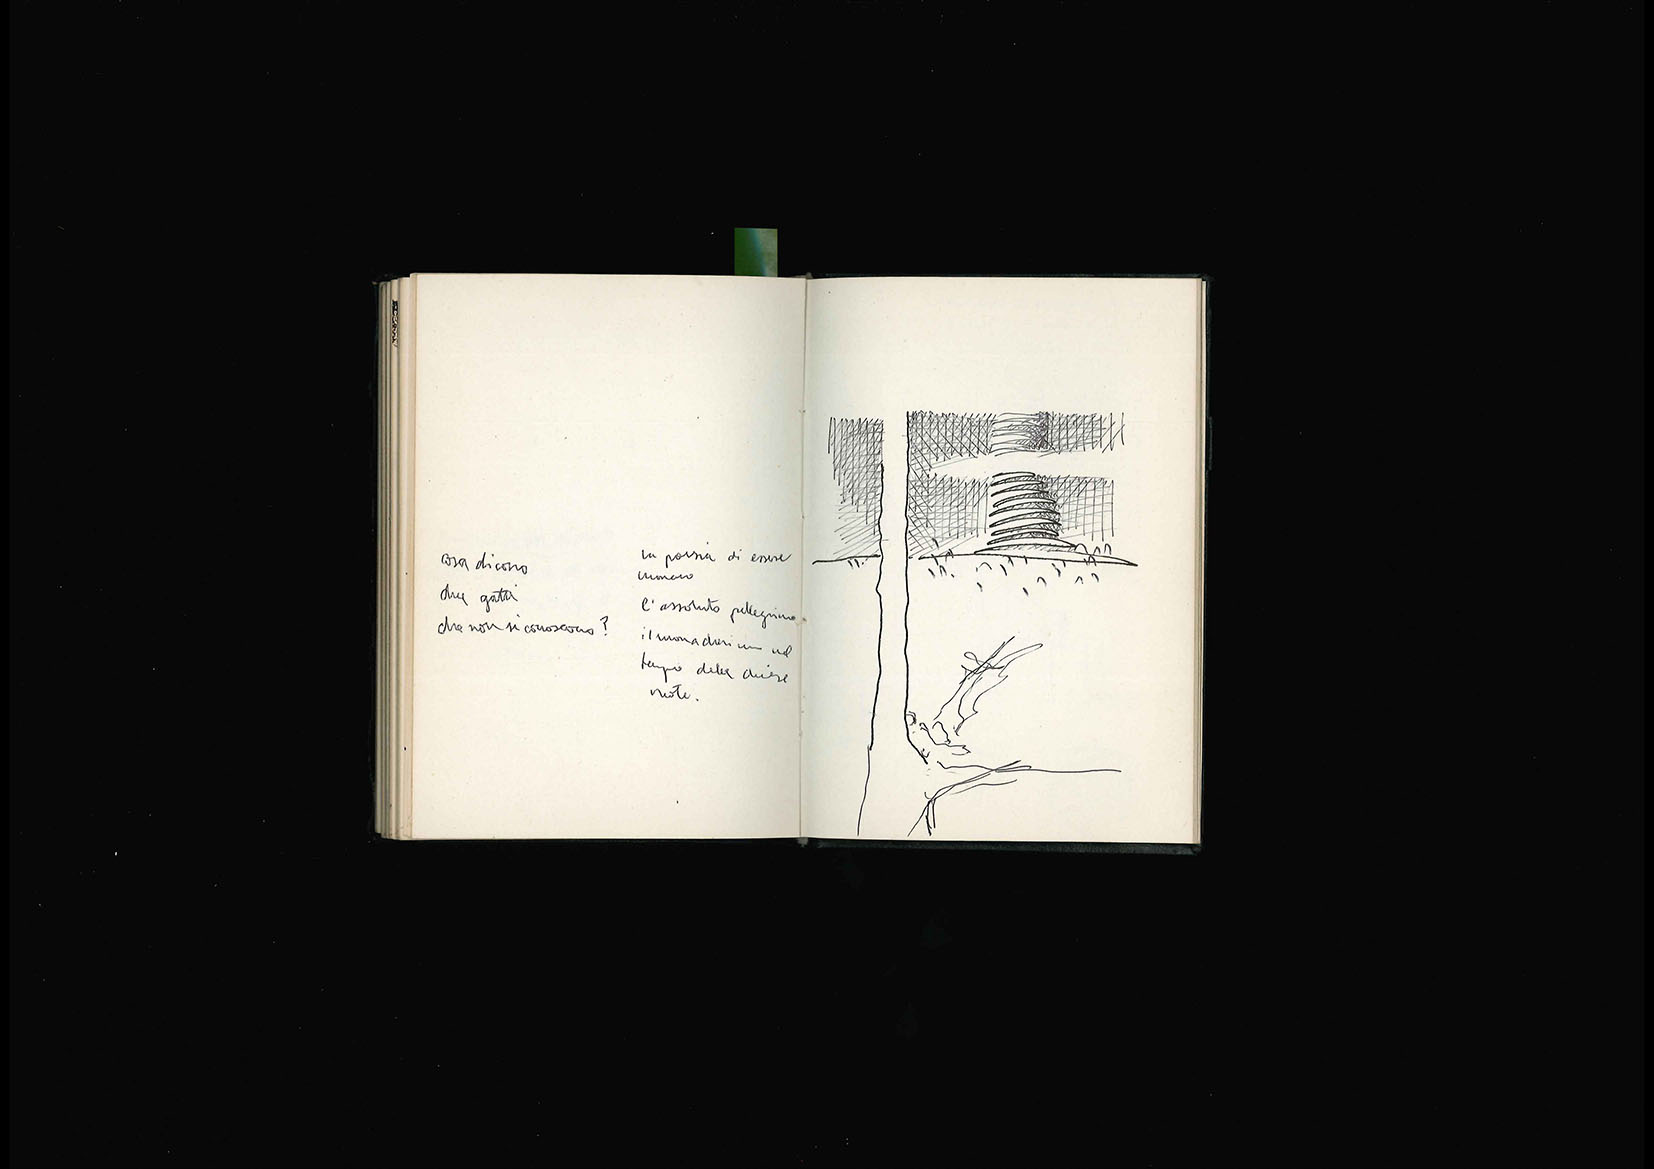 cosa dicono
due gatti
che non si conoscono?
la poesia di essere
monaco
l'assoluto pellegrino
il monachesimo nel
tempo delle chiese
vuote.